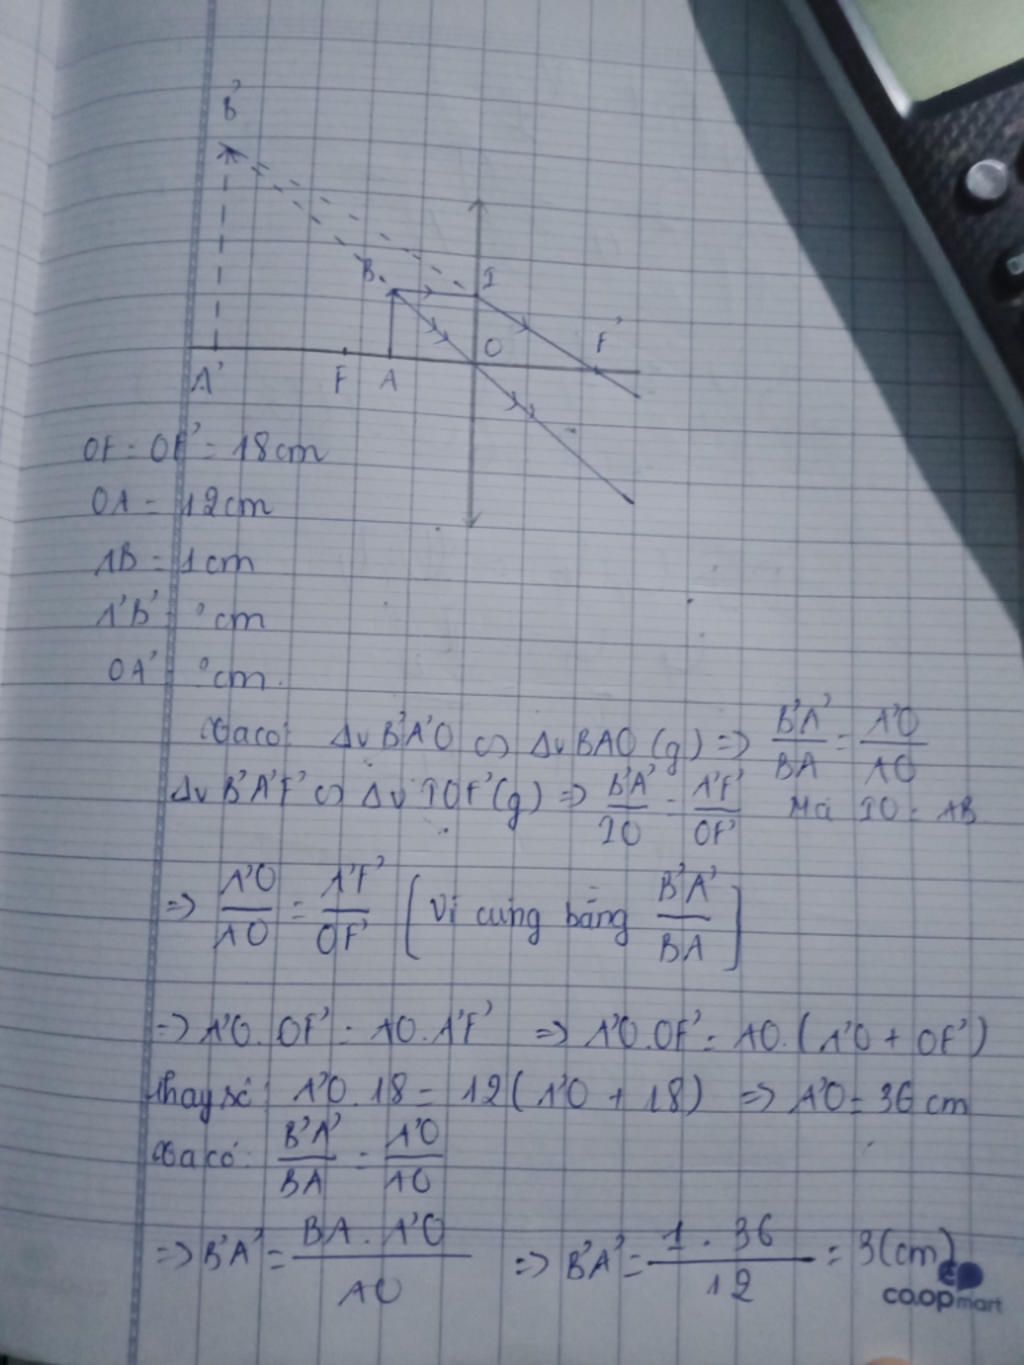 B'
B I
F'
O
A' F A
OF = OF' = 18cm
OA = 12cm
AB = 1cm
A'B' = ? cm
OA' = ? cm
Ta có: Δv B'A'O ∽ Δv BAO (g) => B'A'/BA = A'O/AO
Δv B'A'F' ∽ Δv IOF' (g) => B'A'/IO = A'F'/OF' Mà IO = AB
=> A'O/AO = A'F'/OF' [Vì cùng bằng B'A'/BA]
=> A'O.OF' = AO.A'F' => A'O.OF' = AO.(A'O + OF')
Thay số: A'O.18 = 12(A'O + 18) => A'O = 36 cm
Ta có: B'A'/BA = A'O/AO
=> B'A' = BA.A'O/AO => B'A' = 1.36/12 = 3(cm)
co.opmart